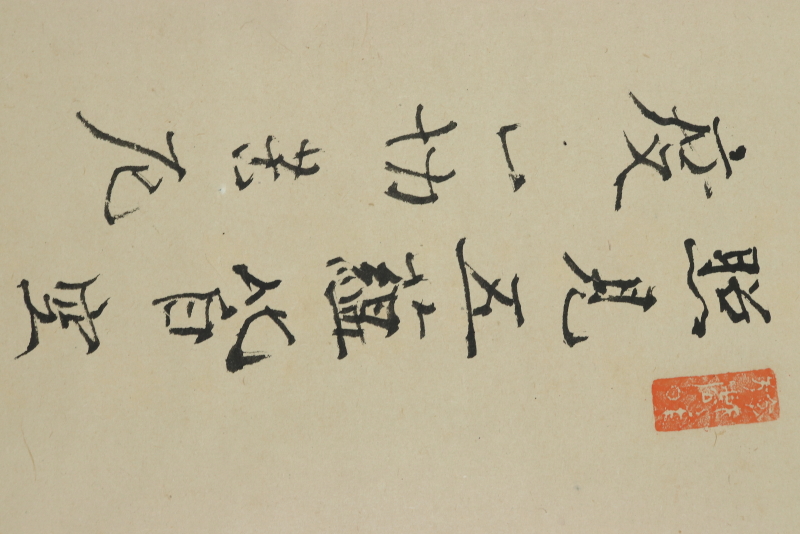 照見五蘊皆空
度一切苦厄